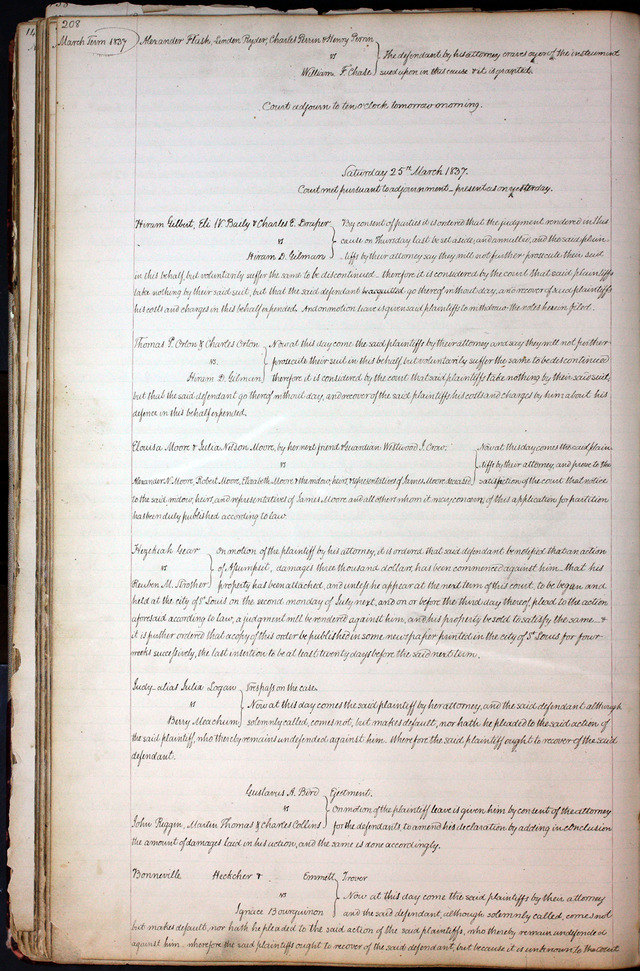 208
March Term 1837
Alexander Flash, Linden Ryder, Charles Perrin & Henry Perrin
vs
William F. Chase
The defendant by his attorney craves oyer of the instrument
sued upon in this cause & it is granted.
Court adjourn to ten o'clock tomorrow morning.
Saturday 25th March 1837.
Court met pursuant to adjournment - present as on yesterday.
Hiram Gilbert, Eli W. Baily & Charles E. Draper
vs
Hiram D. Gilman
By consent of parties it is ordered that the judgment rendered in this
cause on Thursday last be set aside, and annulled, and the said plain-
tiffs by their attorney say they will not further prosecute their suit
in this behalf, but voluntarily suffer the same to be discontinued. therefore it is considered by the court that said plaintiffs
take nothing by their said suit, but that the said defendant go thereof without day, and recover of said plaintiffs
his costs and charges in this behalf expended. And on motion leave is given said plaintiffs to withdraw the notes herein filed.
Thomas P. Orton & Charles Orton
vs.
Hiram D. Gilman
Now at this day come the said plaintiffs by their attorney and say they will not further
prosecute their suit in this behalf, but voluntarily suffer the same to be descontinued
therefore it is considered by the court that said plaintiffs take nothing by their said suit,
but that the said defendant go thereof without day, and recover of the said plaintiffs his costs and charges by him about his
defence in this behalf expended.
Elouisa Moore & Julia Nelson Moore, by her next friend & Guardian Westwood J. Crow.
vs
Alexander N. Moore, Robert Moore, Elizabeth Moore & the widow, heirs, & representatives of James Moore deceased
Now at this day comes the said plain-
tiffs by their attorney, and prove to the
satisfaction of the court that notice
to the said widow, heirs, and representatives of James Moore and all others whom it may concern, of this application for partition
has been duly published according to law.
Hezekiah Gear
vs
Reuben M. Strother
On motion of the plaintiff by his attorney, it is ordered that said defendant be notified that an action
of Assumpsit, damages three thousand dollars, has been commenced against him that his
property has been attached, and unless he appear at the next term of this court, to be began and
held at the city of St Louis on the second monday of July next, and on or before the third day thereof, plead to the action
aforesaid according to law, a judgment will be rendered against him, and his property be sold to satisfy the same &
it is further ordered that a copy of this order be published in some newspaper printed in the city of St Louis for four
weeks successively, the last insertion to be at least twenty days before the said next term.
Judy alias Julia Logan
vs
Berry Meachum
Trespass on the case.
Now at this day comes the said plaintiff by her attorney, and the said defendant although
solemnly called, comes not, but makes default, nor hath he pleaded to the said action of
the said plaintiff, who thereby remains undefended against him. Wherefore the said plaintiff ought to recover of the said
defendant.
Gustavus A. Bird
vs
John Riggin, Martin Thomas & Charles Collins
Ejectment.
On motion of the plaintiff leave is given him by consent of the attorney
for the defendants, to amend his declaration by adding in conclusion
the amount of damages laid in his action, and the same is done accordingly.
Bonneville Hechcher & Emmett
vs
Ignace Bourguinon
Trover
Now at this day come the said plaintiffs by their attorney
and the said defendant, although solemnly called, comes not
but makes default, nor hath he pleaded to the said action of the said plaintiffs, who thereby remain undefended
against him wherefore the said plaintiffs ought to recover of the said defendant, but because it is unknown to the court